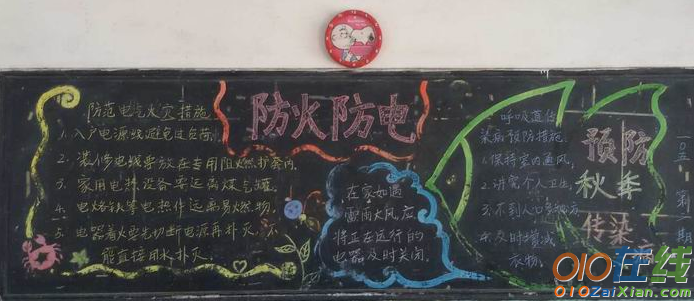 防范电气火灾措施
1、入户电源线避免过负荷
2、装修电线要放在专用阻燃护套内
3、家用电热设备要远离煤气罐
4、电烙铁等电热件远离易燃物
5、电器着火要先切断电源再扑灭,不
能直接用水扑灭。
防火防电
在家如遇
雷雨大风应
将正在运行的
电器及时关闭。
呼吸道传
染病预防措施
1、保持室内通风,
2、讲究个人卫生,
3、不到人口多的
4、及时增减
衣物,
预防
秋季
传染
一〇五
第二期
010在线
010ZaiXian.com